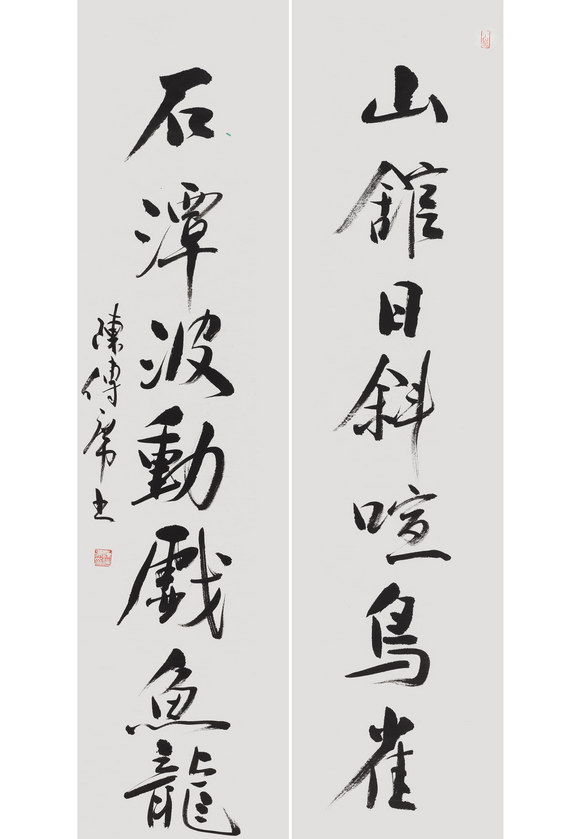 山館日斜喧鳥雀
石潭波動戲魚龍
陳傳席書